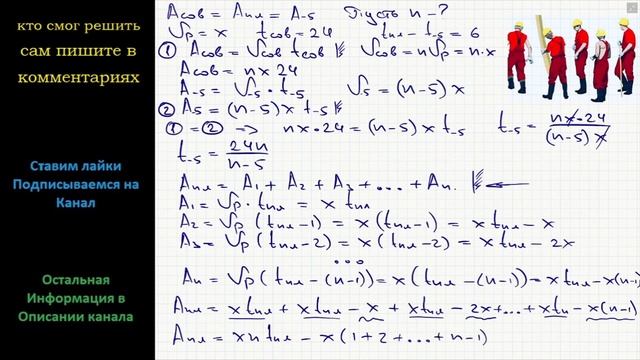 кто смог решить
сам пишите в
комментариях
Ставим лайки
Подписываемся на
Канал
Остальная
Информация в
Описании канала
Aсов = Aпл = A-5 Пусть n - ?
Vр = x tсов = 24 tпл - t-5 = 6
① Aсов = Vсов tсов Vсов = nVр = n·x
Aсов = nx 24
A-5 = V-5 · t-5 V-5 = (n-5) x
② A5 = (n-5) x t-5
① = ② => nx·24 = (n-5) x t-5 t-5 = nx·24/(n-5) x
t-5 = 24n/n-5
Aпл = A1 + A2 + A3 + ... + An.
A1 = Vр · tпл = x tпл
A2 = Vр (tпл-1) = x (tпл-1) = x tпл - x
A3 = Vр (tпл-2) = x (tпл-2) = x tпл - 2x
...
An = Vр (tпл-(n-1)) = x (tпл-(n-1)) = x tпл - x(n-1)
Aпл = x tпл + x tпл - x + x tпл - 2x + ... + x tп - x(n-1)
Aпл = xn tпл - x(1+2+...+n-1)